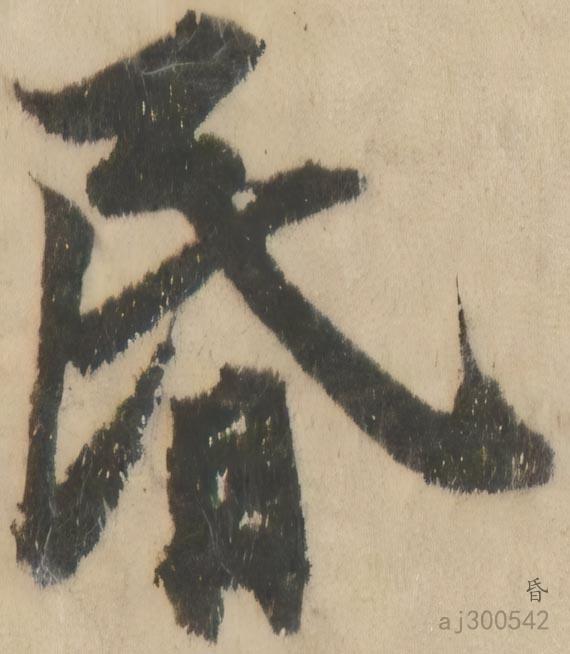 昏
昏
aj300542